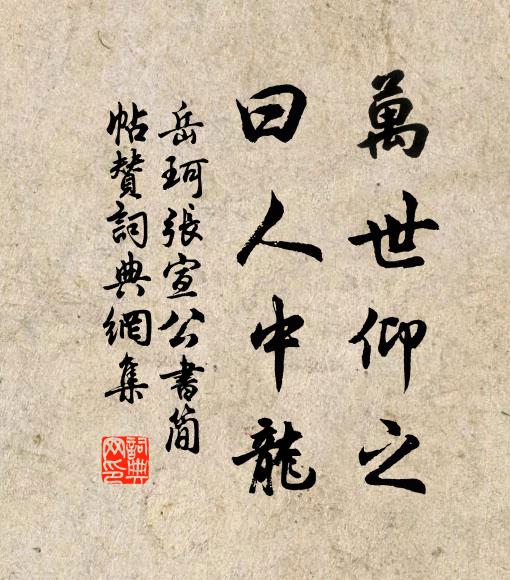 萬世仰之
曰人中龍
岳珂張宣公書簡
帖贊詞典網集
詞典
网印